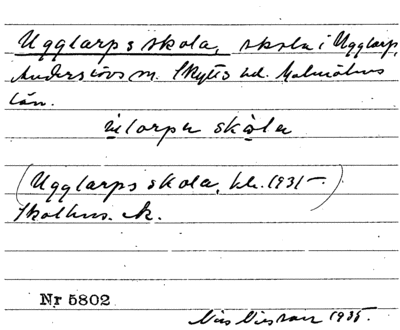 Ugglarps skola, skola i Ugglarp,
Anderslövs sn. Skytts hd. Malmöhus
län.
ùlarpa skọla
(Ugglarps skola, bl. 1931–)
Skolhus. ek.
Nr 5802
Nils Nilsson 1935.